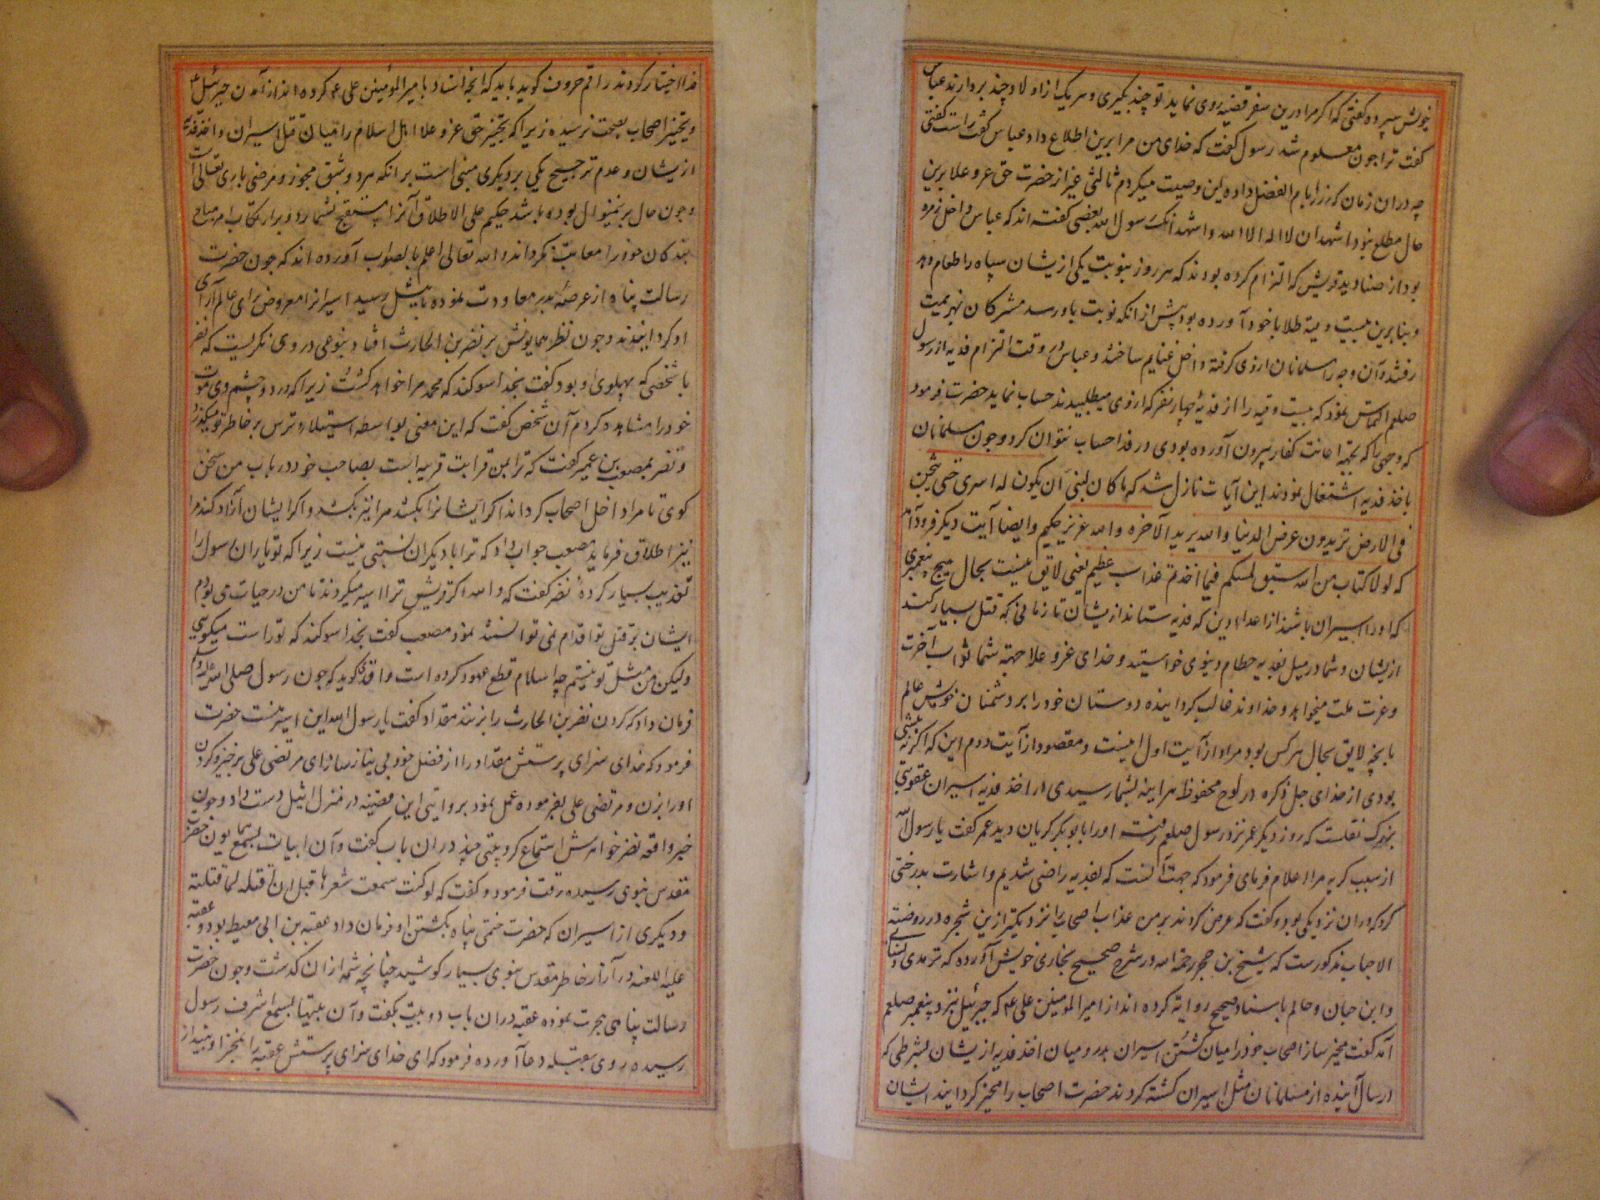 خویش سپرده گفتی که اگر مرا درین سفر قضیه روی نماید تو چندین گیری و هر یک از اولاد چند بردارند عباس
گفت ترا چون معلوم شد رسول گفت که خدای من مرا برین اطلاع داد عباس گفت راست گفتی
چه دران زمان که زر را بام الفضل داده این وصیت میکردم ثالثی غیر از حضرت حق عز و علا برین
حال مطلع نبود اشهد ان لا اله الا الله و اشهد انک رسول الله بعضی گفته اند که عباس داخل زمره
بود از صنادید قریش که التزام کرده بودند که هر روز بنوبت یکی ازیشان سپاه را طعام دهد
و بنابرین بیست وقیه طلا با خود آورده بود پیش از انکه نوبت باو رسد مشرکان بهزیمت
رفتند و آن وجه را مسلمانان ازوی گرفته داخل غنایم ساختند و عباس در وقت التزام فدیه از رسول
صلعم التماس نمود که بیست وقیه را از فدیه چهار نفر که ازوی میطلبیدند حساب نماید حضرت فرمود
که وجهی را که بجهة اعانت کفار بیرون آورده بودی در فدا حساب نتوان کرد و چون مسلمانان
باخذ فدیه اشتغال نمودند این آیات نازل شد که ما کان لنبی ان یکون له اسری حتی یثخن
فی الارض تریدون عرض الدنیا والله یرید الآخرة والله عزیز حکیم و ایضا آیت دیگر فرود آمد
که لولا کتاب من الله سبق لمسکم فیما اخذتم عذاب عظیم یعنی لایق نیست بحال هیچ پیغمبری
که او را اسیران باشند از اعداء دین که فدیه ستاند ازیشان تا زمانی که قتل بسیار کند
ازیشان و شما در میل بفدیه حطام دنیوی خواستید و خدای عز و علا جهة شما ثواب آخرت
و عزت ملت میخواهد و خداوند غالب گرداننده دوستان خود را بر دشمنان خویش عالم
بانچه لایق بحال هر کس بود مراد از آیت اول اینست و مقصود از آیت دوم این که اگر نه پیشی
بودی از خدای جل ذکره در لوح محفوظ هر اینه بشما رسیدی از اخذ فدیه اسیران عقوبتی
بزرگ نقلست که روز دیگر عمر نزد رسول صلعم رفته او را با ابو بکر گریان دید عمر گفت یا رسول الله
از سبب گریه مرا اعلام فرمای فرمود که جهت آنست که بفدیه راضی شدیم و اشارت بدرختی
کرد که دران نزدیکی بود و گفت که عرض کردند بر من عذاب اصحاب را نزدیکتر ازین شجره در روضة
الاحباب مذکورست که شیخ بن حجر رحمه الله در شرح صحیح بخاری خویش آورده که ترمذی و نسائی
و ابن حبان و حاکم باسناد صحیح روایة کرده اند از امیر المومنین علی ع م که جبرئیل نزد پیغمبر صلعم
آمد گفت مخیر ساز اصحاب خود را میان کشتن اسیران بدر و میان اخذ فدیه ازیشان بشرطی که
در سال آینده از مسلمانان مثل اسیران کشته گردند حضرت اصحاب را مخیر گردانید ایشان
فدا اختیار کردند راقم حروف گوید باید که انچه اسناد بامیر المومنین علی ع م کرده اند از آمدن جبرئیل ع م
و تخییر اصحاب بصحت نرسیده زیرا که تخییر حق عز و علا اهل اسلام را میان قتل اسیران و اخذ فدیه
ازیشان و عدم ترجیح یکی بر دیگری مبنی است بر انکه هر دو شق مجوز و مرضی باری تعالی است
و چون حال برینمنوال بوده باشد حکیم علی الاطلاق آنرا مستقبح نشمارد و بر ارتکاب امر مباح
بندگان خود را معاتب نگرداند والله تعالی اعلم بالصواب آورده اند که چون حضرت
رسالت پناه از عرصه بدر معاودت نموده باثیل رسید اسیرانرا معروض رای عالم آرای
او گردانیدند و چون نظر همایونش بر نضر بن الحارث افتاد بنوعی در وی نگریست که نضر
با شخصی که پهلوی او بود گفت بخدا سوکند که محمد مرا خواهد کشت زیرا که در دو چشم وی موت
خود را مشاهده کردم آن شخص گفت که این معنی بواسطه استیلاء ترس بر خاطر تو میگذرد
و نضر بمصعب بن عمیر گفت که ترا بمن قرابت قریبه است بصاحب خود در باب من سخن
گوی تا مرا داخل اصحاب گرداند اگر ایشانرا بکشد مرا نیز بکشد و اگر ایشان آزاد کند مرا
نیز اطلاق فرماید مصعب جواب داد که ترا با دیگران نسبتی نیست زیرا که تو یاران رسول را
تعذیب بسیار کرده نضر گفت که والله اگر قریش ترا اسیر میکردند تا من در حیات می بودم
ایشان بر قتل تو اقدام نمی توانستند نمود مصعب گفت بخدا سوکند که تو راست میگویی
ولیکن من مثل تو نیستم چه اسلام قطع عهود کرده است واقدی گوید که چون رسول صلی الله علیه وسلم
فرمان داد که گردن نضر بن الحارث را بزنند مقداد گفت یا رسول الله این اسیر منست حضرت
فرمود که خدای سزای پرستش مقداد را از فضل خود بی نیاز ساز ای مرتضی علی برخیز و گردن
او را بزن و مرتضی علی بفرموده عمل نمود بروایتی این قضیه در منزل اثیل دست داد و چون
خبر واقعه نضر خواهرش استماع کرد بیتی چند دران باب گفت و آن ابیات بسمع همایون حضرت
مقدس نبوی رسیده رقت فرمود و گفت که لو کنت سمعت شعرها قبل ان اقتله لما قتلته
و دیگری از اسیران که حضرت ختمی پناه بکشتن او فرمان داد عقبه بن ابی معیط بود و عقبه
علیه اللعنه در آزار خاطر مقدس نبوی بسیار کوشید چنانچه شمه ازان گذشت و چون حضرت
رسالت پناهی هجرت نموده عقبه دران باب دو بیت بگفت و آن بیتها بسمع اشرف رسول
رسیده روی بقبله دعا آورده فرمود که ای خدای سزای پرستش عقبه را بمنخر او بینداز